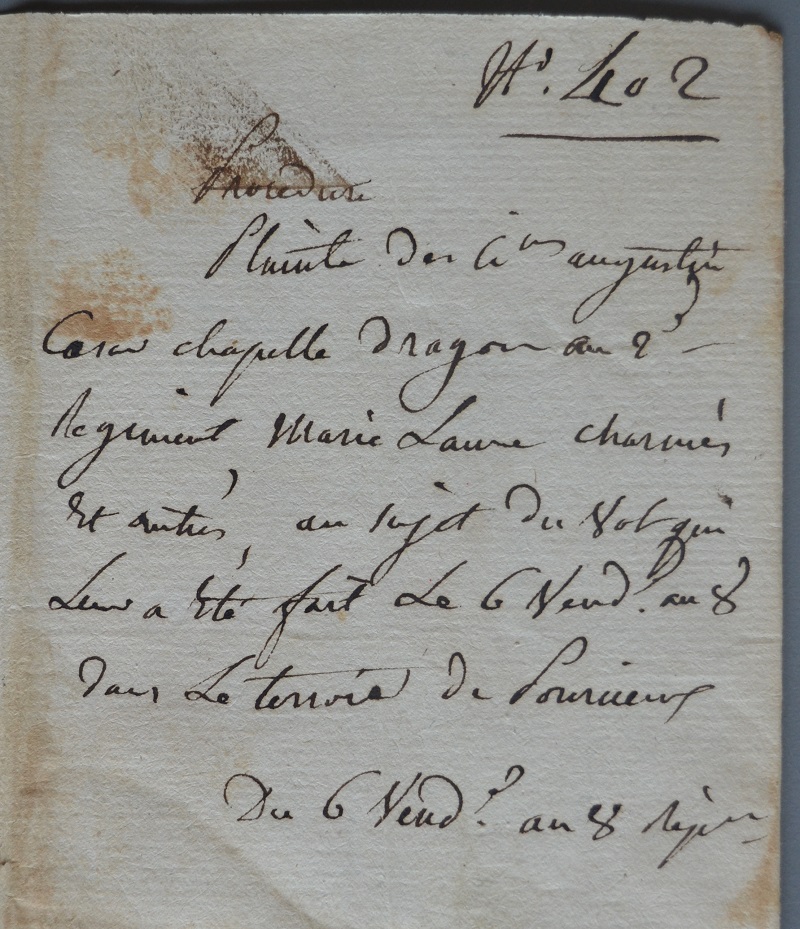 N°. 402
Procédure
Plainte des Cens augustin
Cesar chapelle dragon au 2e
Regiment, Marie Laure charmés
Et autres, au sujet du vol qui
Leur a Eté fait Le 6 Vend.re an 8
dans Le terroir de Pourcieux
Du 6 Vend.re an 8 Rep.ain